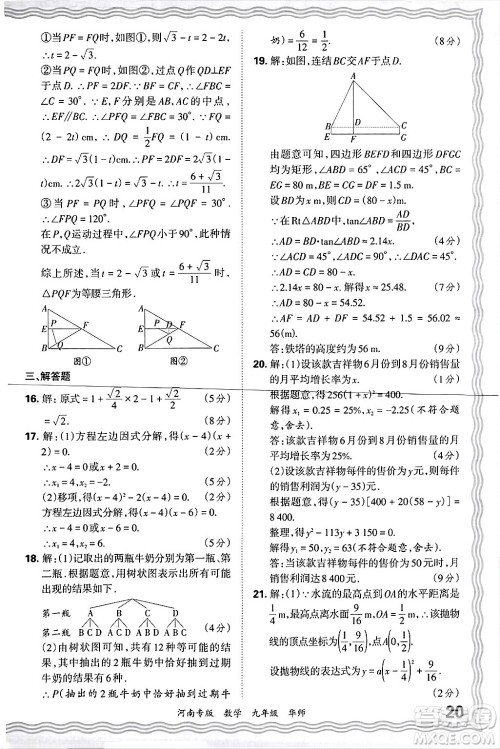 ①当 PF = FQ 时,如图①,
则√3 - t = 2 - 2t,
∴ t = 2 - √3.
②当 PQ = FQ 时,如图②,作 QD⊥EF 于点 D. ∴ PF = 2DF. ∵ BF = CF, ∴ ∠FBC = ∠C = 30°. ∵ E, F 分别是 AB, AC 的中点, ∴ EF∥BC. ∴ ∠PFQ = ∠FBC = 30°. ∵ FQ = (2 - 2t) cm, ∴ DQ = 1/2 FQ = (1 - t) cm.
∴ DF = √3(1 - t) cm. ∴ t = (6 + √3)/11.
③当 PF = PQ 时, ∠PFQ = ∠PQF = 30°,
∴ ∠FPQ = 120°.
在 P, Q 运动过程中, ∠FPQ ≤ 90°, ∴ 此种情况不成立.
综上所述,当 t = 2 - √3 或 t = (6 + √3)/11 时,
△PQF 为等腰三角形.
A E P F Q B C
图①
A E P D F Q B C
图②
三、解答题
16. 解:原式 = √2/4 × 2 - 1 + √2/2 + 1 (5 分)
= √2. (8 分)
17. 解:(1)方程左边因式分解,得(x - 4)(x + 2) = 0.
∴ x - 4 = 0 或 x + 2 = 0.
∴ x₁ = 4, x₂ = -2. (4 分)
(2)移项,得(x - 4)² - 2(x - 4) = 0.
方程左边因式分解,得(x - 4)(x - 6) = 0.
∴ x - 4 = 0 或 x - 6 = 0.
∴ x₁ = 4, x₂ = 6. (8 分)
18. 解:(1)记取出的两瓶牛奶分别为第一瓶、第二瓶. 根据题意,用树状图表示所有可能出现的结果如下.
第一瓶 A B C D
第二瓶 B C D A C D A B D A B C
(4 分)
(2)由树状图可知,共有 12 种等可能的结果,其中抽出的 2 瓶牛奶中恰好抽到过期牛奶的结果有 6 种.
∴ P(抽出的 2 瓶牛奶中恰好抽到过期牛
奶) = 6/12 = 1/2. (8 分)
19. 解:如图,连结 BC 交 AF 于点 D.
A B D C E F G
由题意可知,四边形 BEFD 和四边形 DFGC 均为矩形, ∠ABC = 65°, ∠ACD = 45°, BC = EG = 80 m, BE = DF = 1.5 m.
设 BD 为 x m, 则 CD = (80 - x) m.
∵ 在 Rt△ABD 中, tan∠ABD = AD/BD,
∴ AD = BD·tan∠ABD ≈ 2.14x. (4 分)
∵ ∠ACD = 45°, ∠ADC = 90°, ∴ ∠DAC = 45°.
∴ AD = CD = (80 - x) m. (7 分)
∴ 2.14x = 80 - x. 解得 x ≈ 25.48.
∴ AD = 80 - x = 54.52.
∴ AF = AD + DF = 54.52 + 1.5 = 56.02 ≈ 56(m).
答:铁塔的高度约为 56 m. (9 分)
20. 解:(1)设该款吉祥物 6 月份到 8 月份销售量的月平均增长率为 x.
根据题意,得 256(1 + x)² = 400.
解得 x₁ = 0.25 = 25%, x₂ = -2.25(不符合题意,舍去).
答:该款吉祥物 6 月份到 8 月份销售量的月平均增长率为 25%. (4 分)
(2)设该吉祥物每件售价为 y 元,则每件的销售利润为(y - 35)元.
根据题意,得(y - 35)[400 + 20(58 - y)] = 8 400.
整理,得 y² - 113y + 3 150 = 0.
解得 y₁ = 50, y₂ = 63(不符合题意,舍去).
答:当该吉祥物每件售价为 50 元时,月销售利润达 8 400 元. (9 分)
21. 解:(1)∵ 水流的最高点到 OA 的水平距离为 1/4 m, 最高点离水面 9/16 m, ∴ 该抛物线的顶点坐标为(1/4, 9/16), 点
设抛物线的表达式为 y = a(x - 1/4)² + 9/16
河南专版 数学 九年级 华师
20